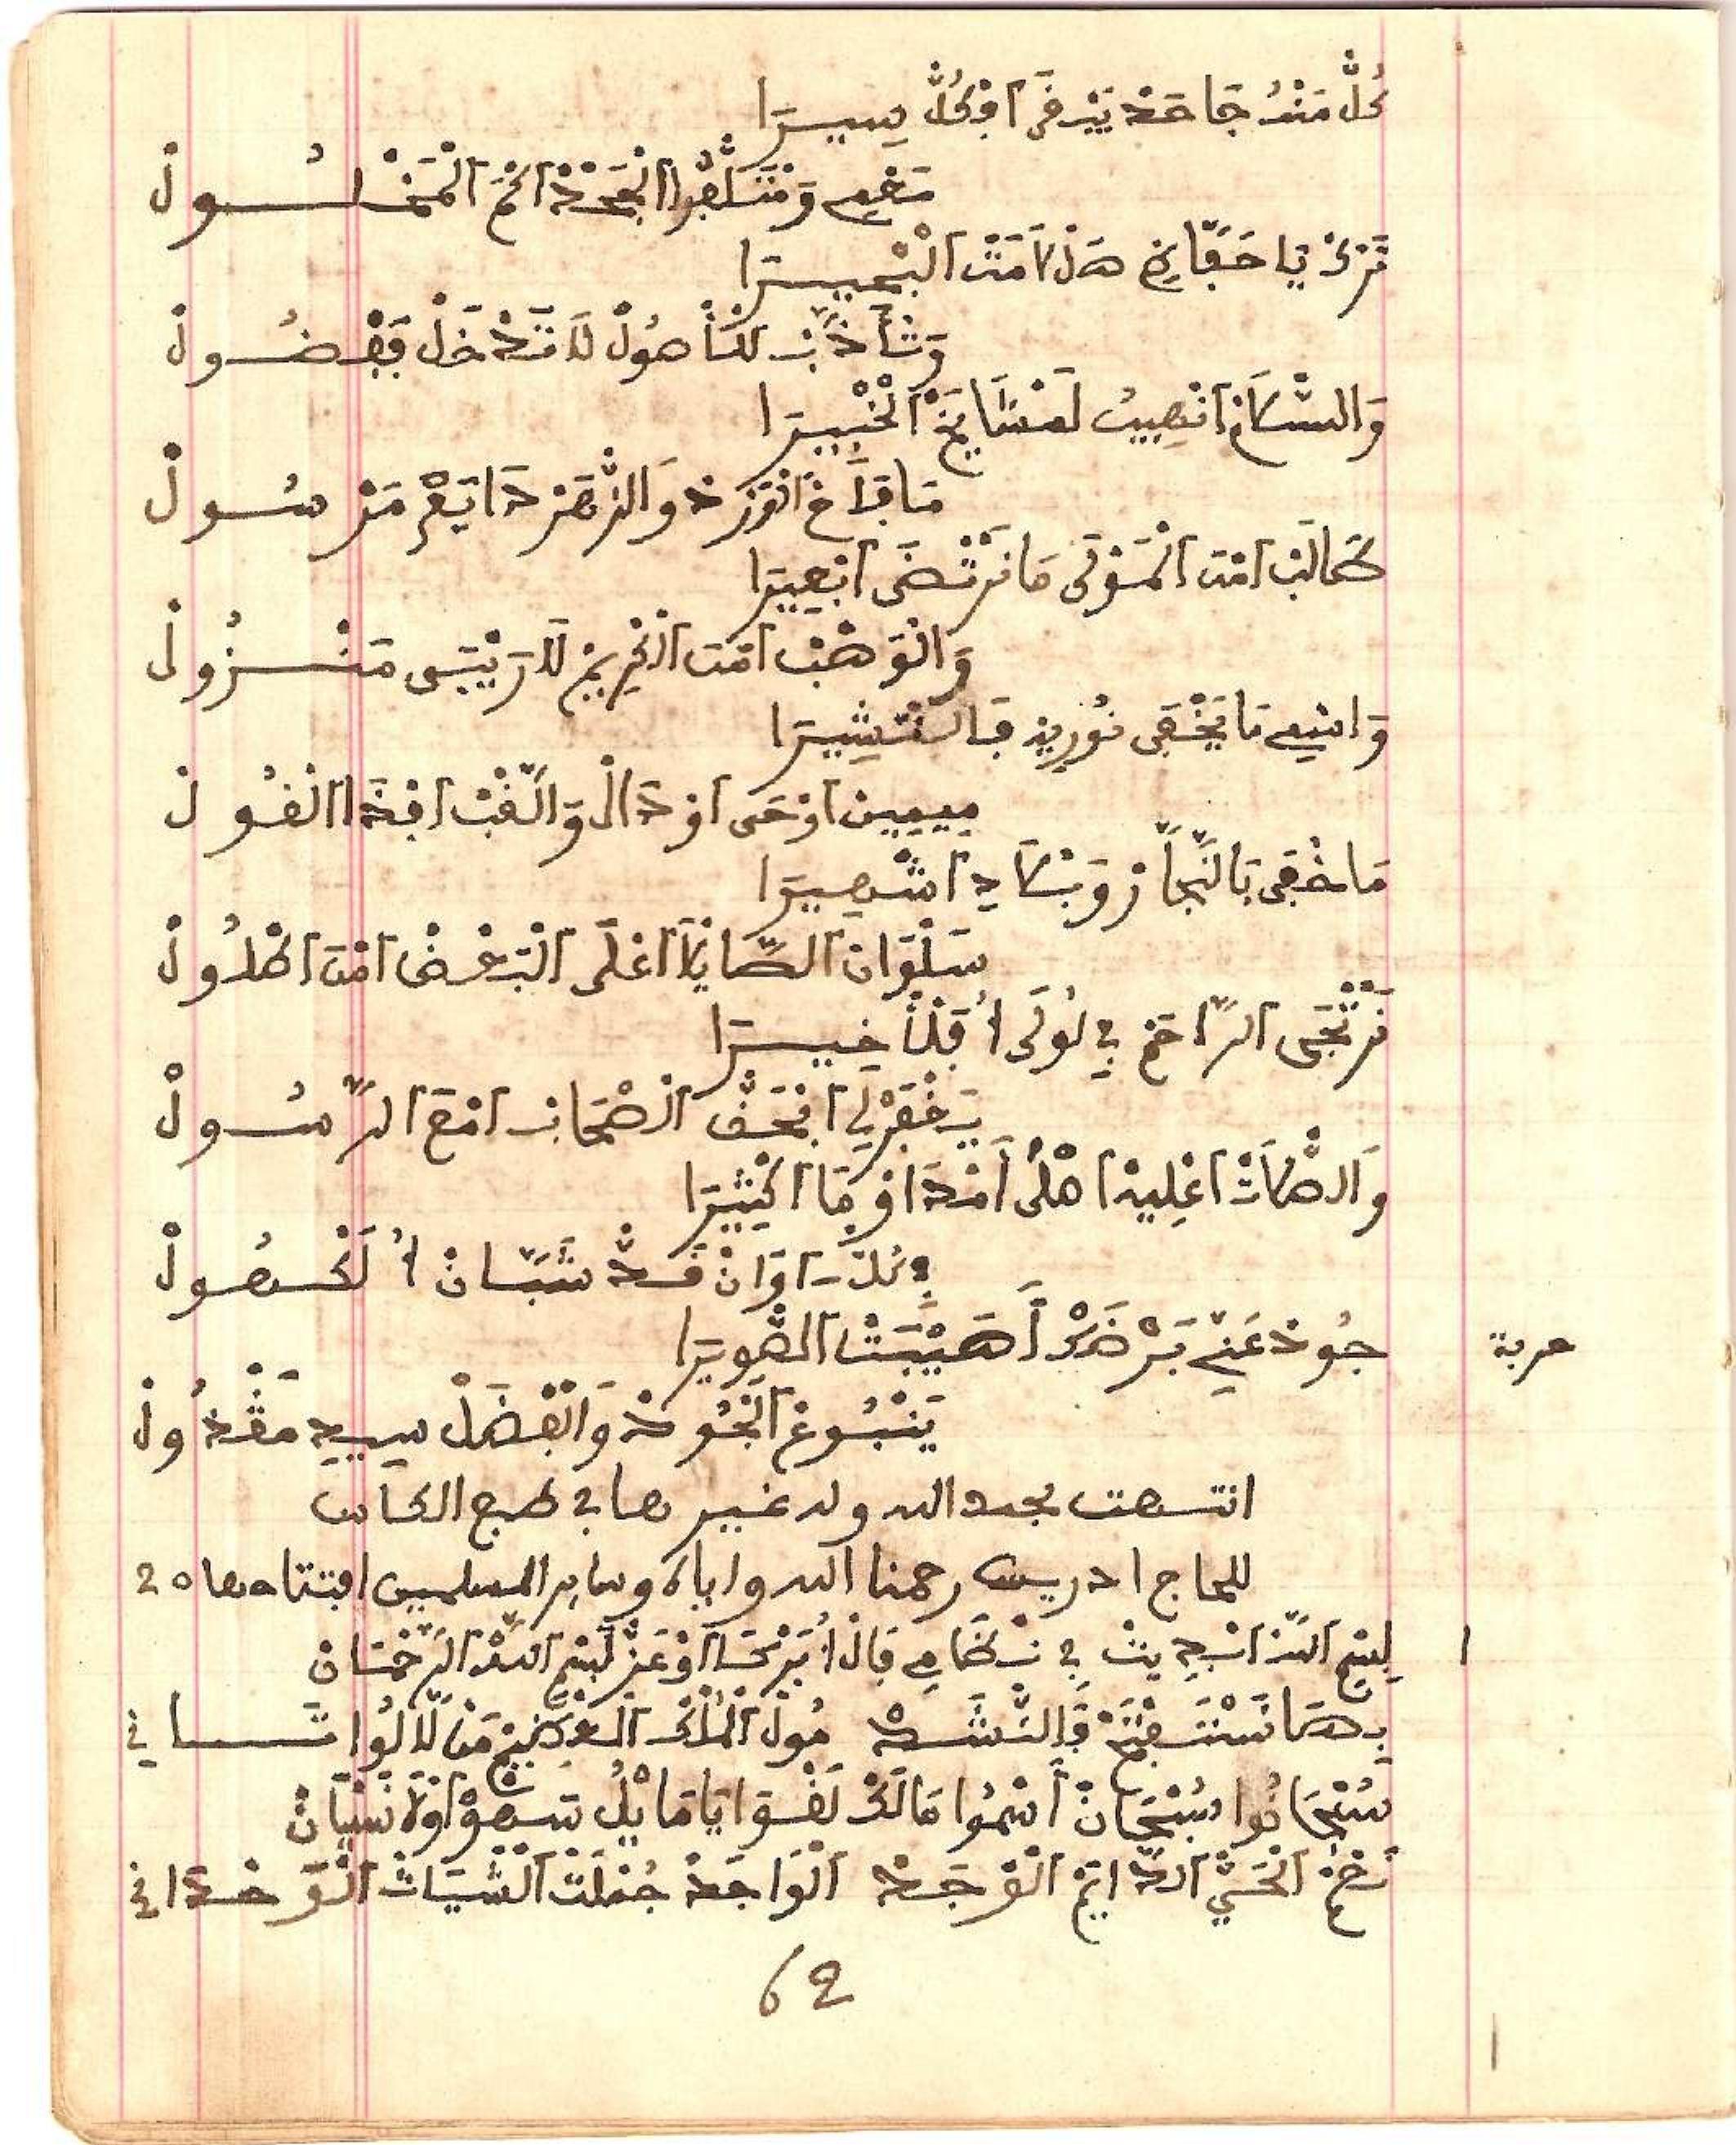 كُلّْ مَنْدُ جَاحَدْ يَبْرَى اوْكُلّْ سِيرَا
مَعْمِي وَمْتَلّْفُوا الْجَحْدْ الْمَخْدُولْ
تَرْكْ يَا حَفَّاظِي هَذْ لَامَتْ الْبْحِيرَا
وَتْأَدَّبْ لَلْأَهُولْ لَا تَدْخَلْ بَفْضُولْ
وَالسْلَامْ انْصِيبُ لَمْشَايَخْ الْخْبِيرَا
مَا فَاحْ الْوَرْدْ وَالزّْهَرْ دَايَعْ مَرْسُولْ
طَالَبْ امْنَ الْمَوْلَى مَا نَرْتْضَى ابْغِيرَا
وَالْوَهْبْ امْنَ الْكْرِيمْ لَا رَيْبَى مَنْزُولْ
وَاسْمِي مَا يَخْفَى نُورِيهْ فَالنّْشِيرَا
مِيمِينْ اوْحَى اوْدَالْ وَالّْقَبْ افْدَا الْقُولْ
مَا خْفَى بَالنَّجَّارْ وَبْلَادِ اشْهِيرَا
سَلْوَانْ الصَّايْلَا اعْلَى الْبَعْضْ امْنَ اطْلُولْ
نَرْتْجَى الرَّاحَمْ فِي لُولَى أُ قَلْأَخِيرَا
يَغْفَرْلِي ابْحَقّْ الصْحَابْ امْعَ الرَّسُولْ
وَالصْلَاتْ اعْلِيهْ اهْلْ أَمْدَاوْمَا اكْثِيرَا
فِي كُلّْ اوَانْ قَدّْ شَبَّانْ أُ لَكْهُولْ
حربة
جُودْ عَنِّي بَرْضَاكْ أَهَيْبَتْ الصْوِيرَا
يَنْبُوعْ الْجُودْ وَالْفْضَلْ سِيدِ مَقْدُولْ
انتهت بحمد الله وله غيرها في طبع الكاس
للحاج ادريس رحمنا الله واياه وساير المسلمين افتتاحها 20
1 لِسْمِ اللّٰه ابْدِيتْ فِي نْظَامِي قَالْ أُ بَرْحَا اوْعَزْ لَسْمِ اللّٰه الرَّحْمَانْ
بِهَا نَسْتَفْتَحْ فَالنّْشَدْ مُولْ الْمُلْكْ الْعْظِيمْ مَنْ لَا لُو اثَانِي
سُبْحَانُوا سُبْحَانْ أَسْمُوا مَالَكْ لَقْوَايَا مَا يْلُ سَهْوْ اوْلَا نَسْيَانْ
نَعْمْ الْحَيّْ الدَّايَمْ الْوْجَدْ الْوَاجَدْ جُمْلَتْ الشْيَاتْ الْوَحْدَانِي
62